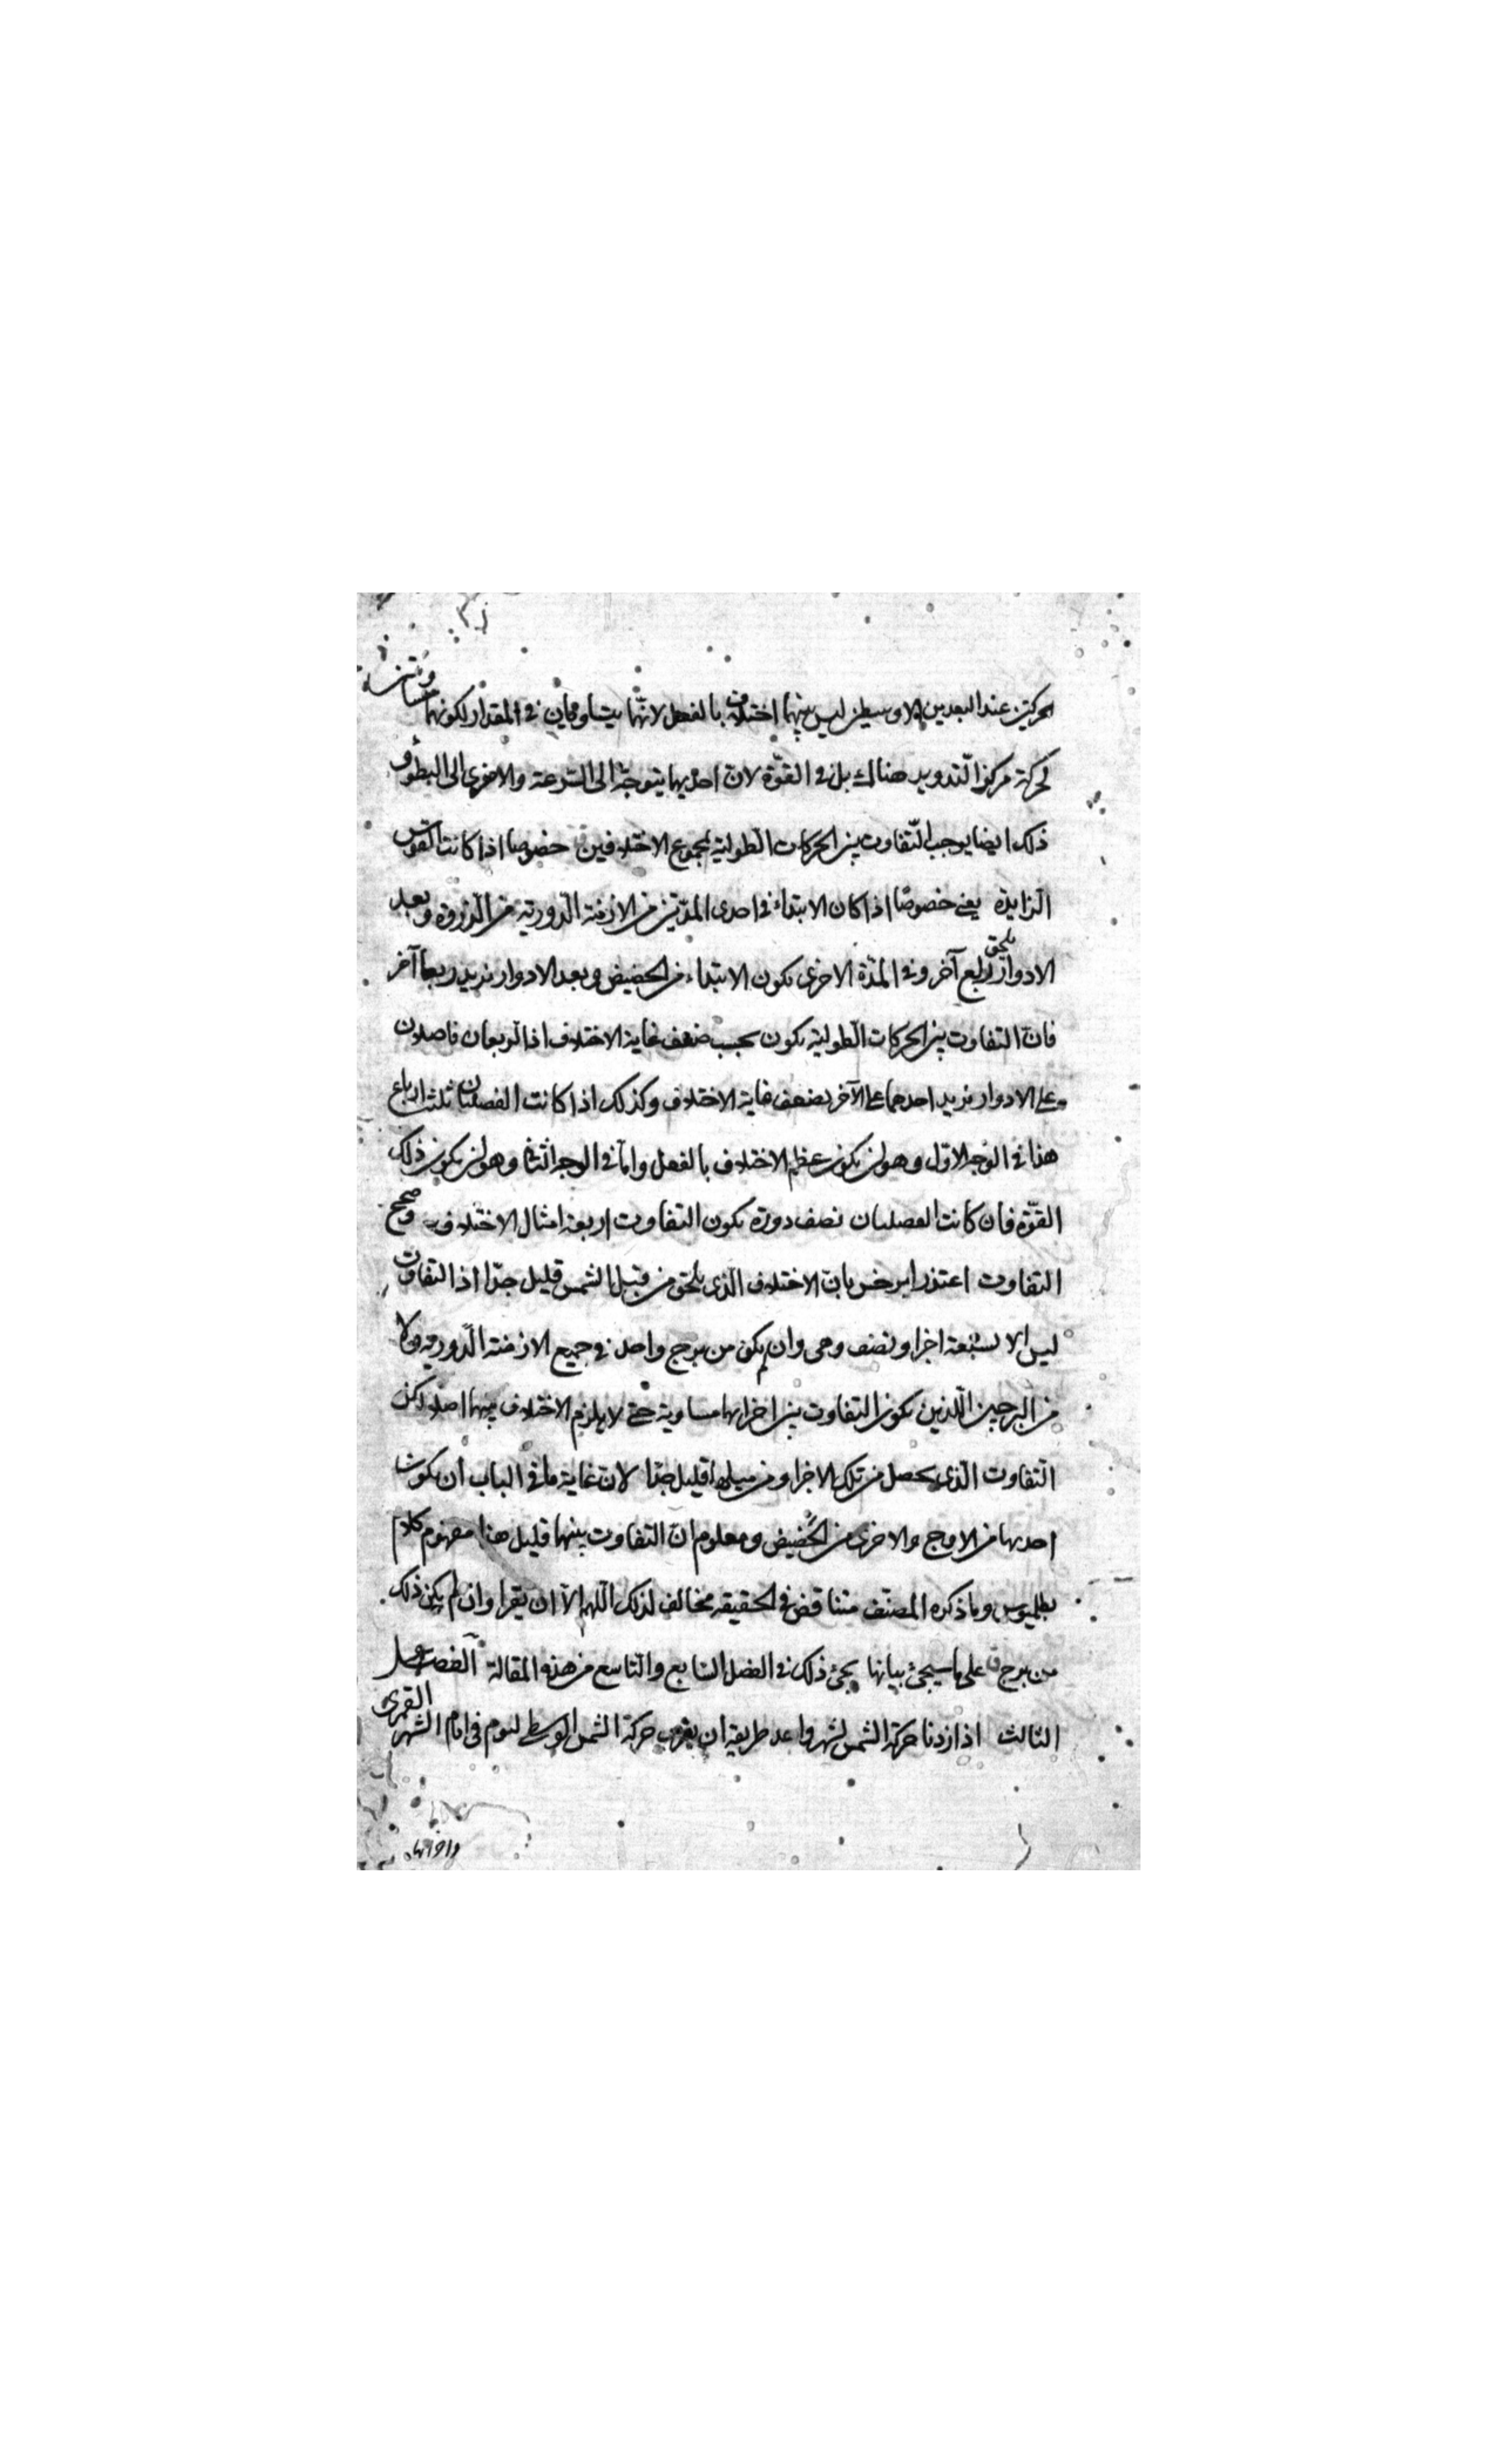 الحركتين عند البعدين الاوسطين ليس بينهما اختلاف بالفعل لانهما متساويان في المقدار لكونهما
لحركة مركز التدوير هناك بل في القوّة لان احديهما يتوجه الى السرعة والاخرى الى البطؤ و
ذلك ايضا يوجب التّفاوت بين الحركات الطولية بمجموع الاختلافين خصوصا اذا كانت القوس
الزايدة يعني خصوصًا اذا كان الابتداء في احدى المدّتين من الازمنة الدّورية من الذروة وبعد
الادوار يلحق ربع آخر وفي المدّة الاخرى يكون الابتداء من الحضيض وبعد الادوار يزيد ربعا آخر
فان التفاوت بين الحركات الطولية يكون بحسب ضعف غاية الاختلاف اذ الربعان فاضلان
على الادوار يزيد احدهما على الآخر بضعف غاية الاختلاف وكذلك اذا كانت الفضلتان ثلثة ارباع
هذا في الوجه الاوّل وهو ان يكون عظم الاختلاف بالفعل وامّا في الوجه الثاني وهو ان يكون ذلك
القوّة فان كانت الفضلتان نصف دورة يكون التفاوت اربعة امثال الاختلاف وصحح
التفاوت اعتذر ابرخس بان الاختلاف الّذي يلحق من قبل الشمس قليل جدّا اذ التفاوت
ليس الا لسبعة اجزا ونصف وهي وان لم يكن من برج واحد في جميع الازمنة الدّورية ولا
من البرجين الّذين يكون التفاوت بين اجزايهما مساوية حتى لا يلزم الاختلاف بينهما اصلا لكن
التّفاوت الّذي يحصل من تلك الاجزا ومن ميلها قليل جدّا لان غاية ما في الباب ان يكون
احديهما من الاوج والاخرى من الحضيض ومعلوم ان التفاوت بينهما قليل هذا مفهوم كلام
بطلميوس وما ذكره المصنّف متناقض في الحقيقة مخالف لذلك اللّهم الّا ان يقرا وان لم يكن ذلك
من برج على ما سيجئ بيانها يجئ ذلك في الفصل السّابع والتّاسع من هذه المقالة الفصل
الثالث اذا اردنا حركة الشمس لشهر واحد طريقه ان يضرب حركة الشمس الوسطى ليوم في ايام الشهر القمرى
واجزائها